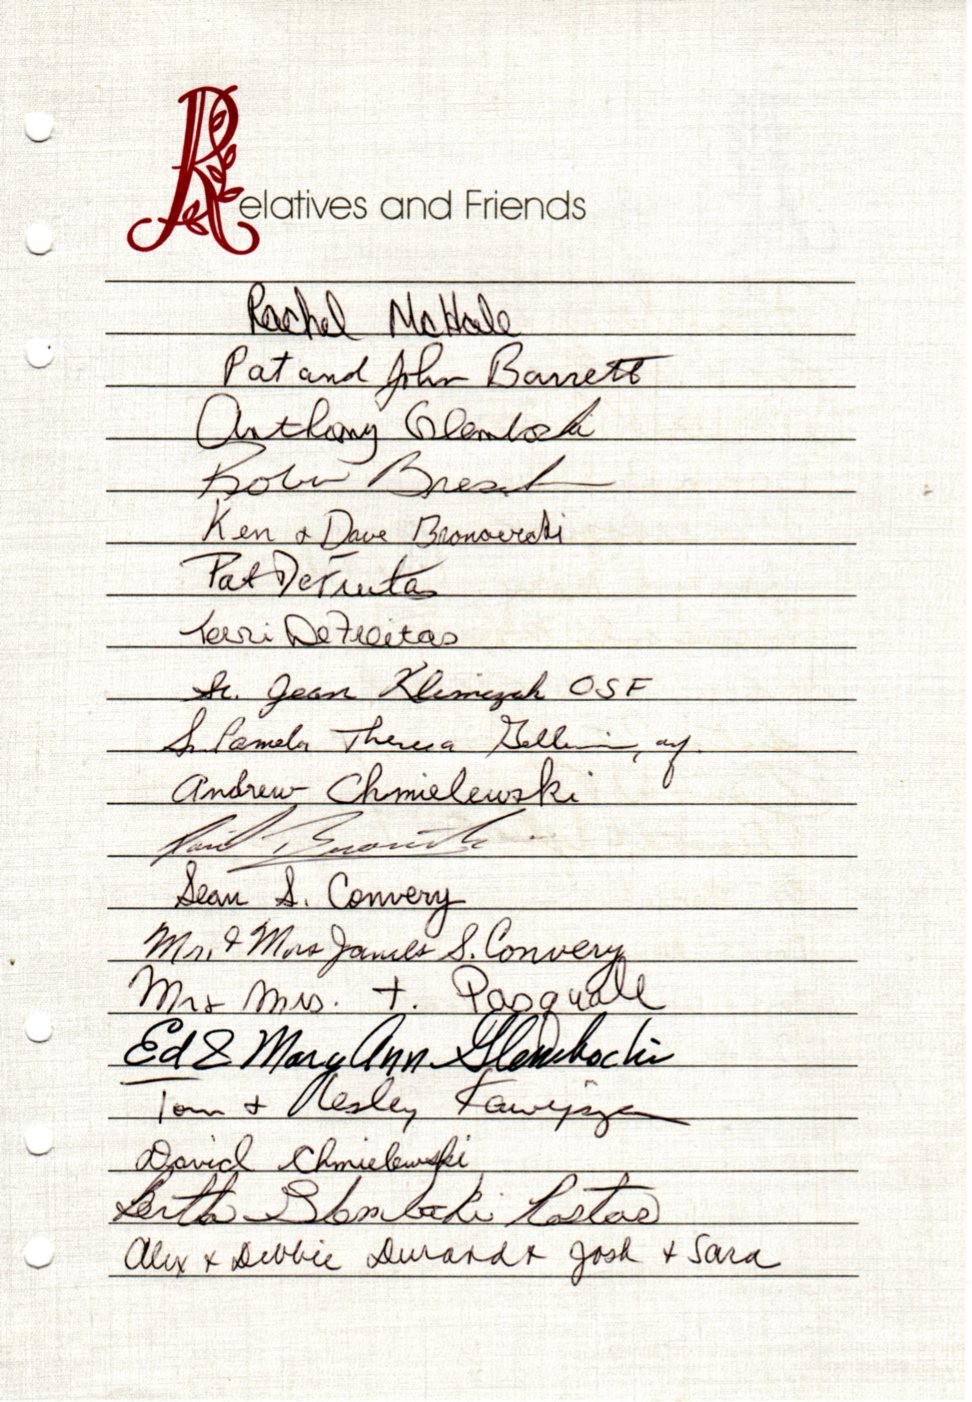 Relatives and Friends
Rachel McHale
Pat and John Barrett
Anthony Glembocki
Robin
Ken & Dave Bronowski
Pat DeFreitas
Terri DeFreitas
Sr. Jean Klimczak OSF
S. Pamela Theresa
Andrew Chmielewski
Sean S. Convery
Mr. & Mrs James S. Convery
Mr & Mrs. T. Pasquale
Ed & Mary Ann Glembocki
Tom & Lesley
David Chmielewski
Bertha Glembocki Kostas
Alex & Debbie Durand & Josh & Sara